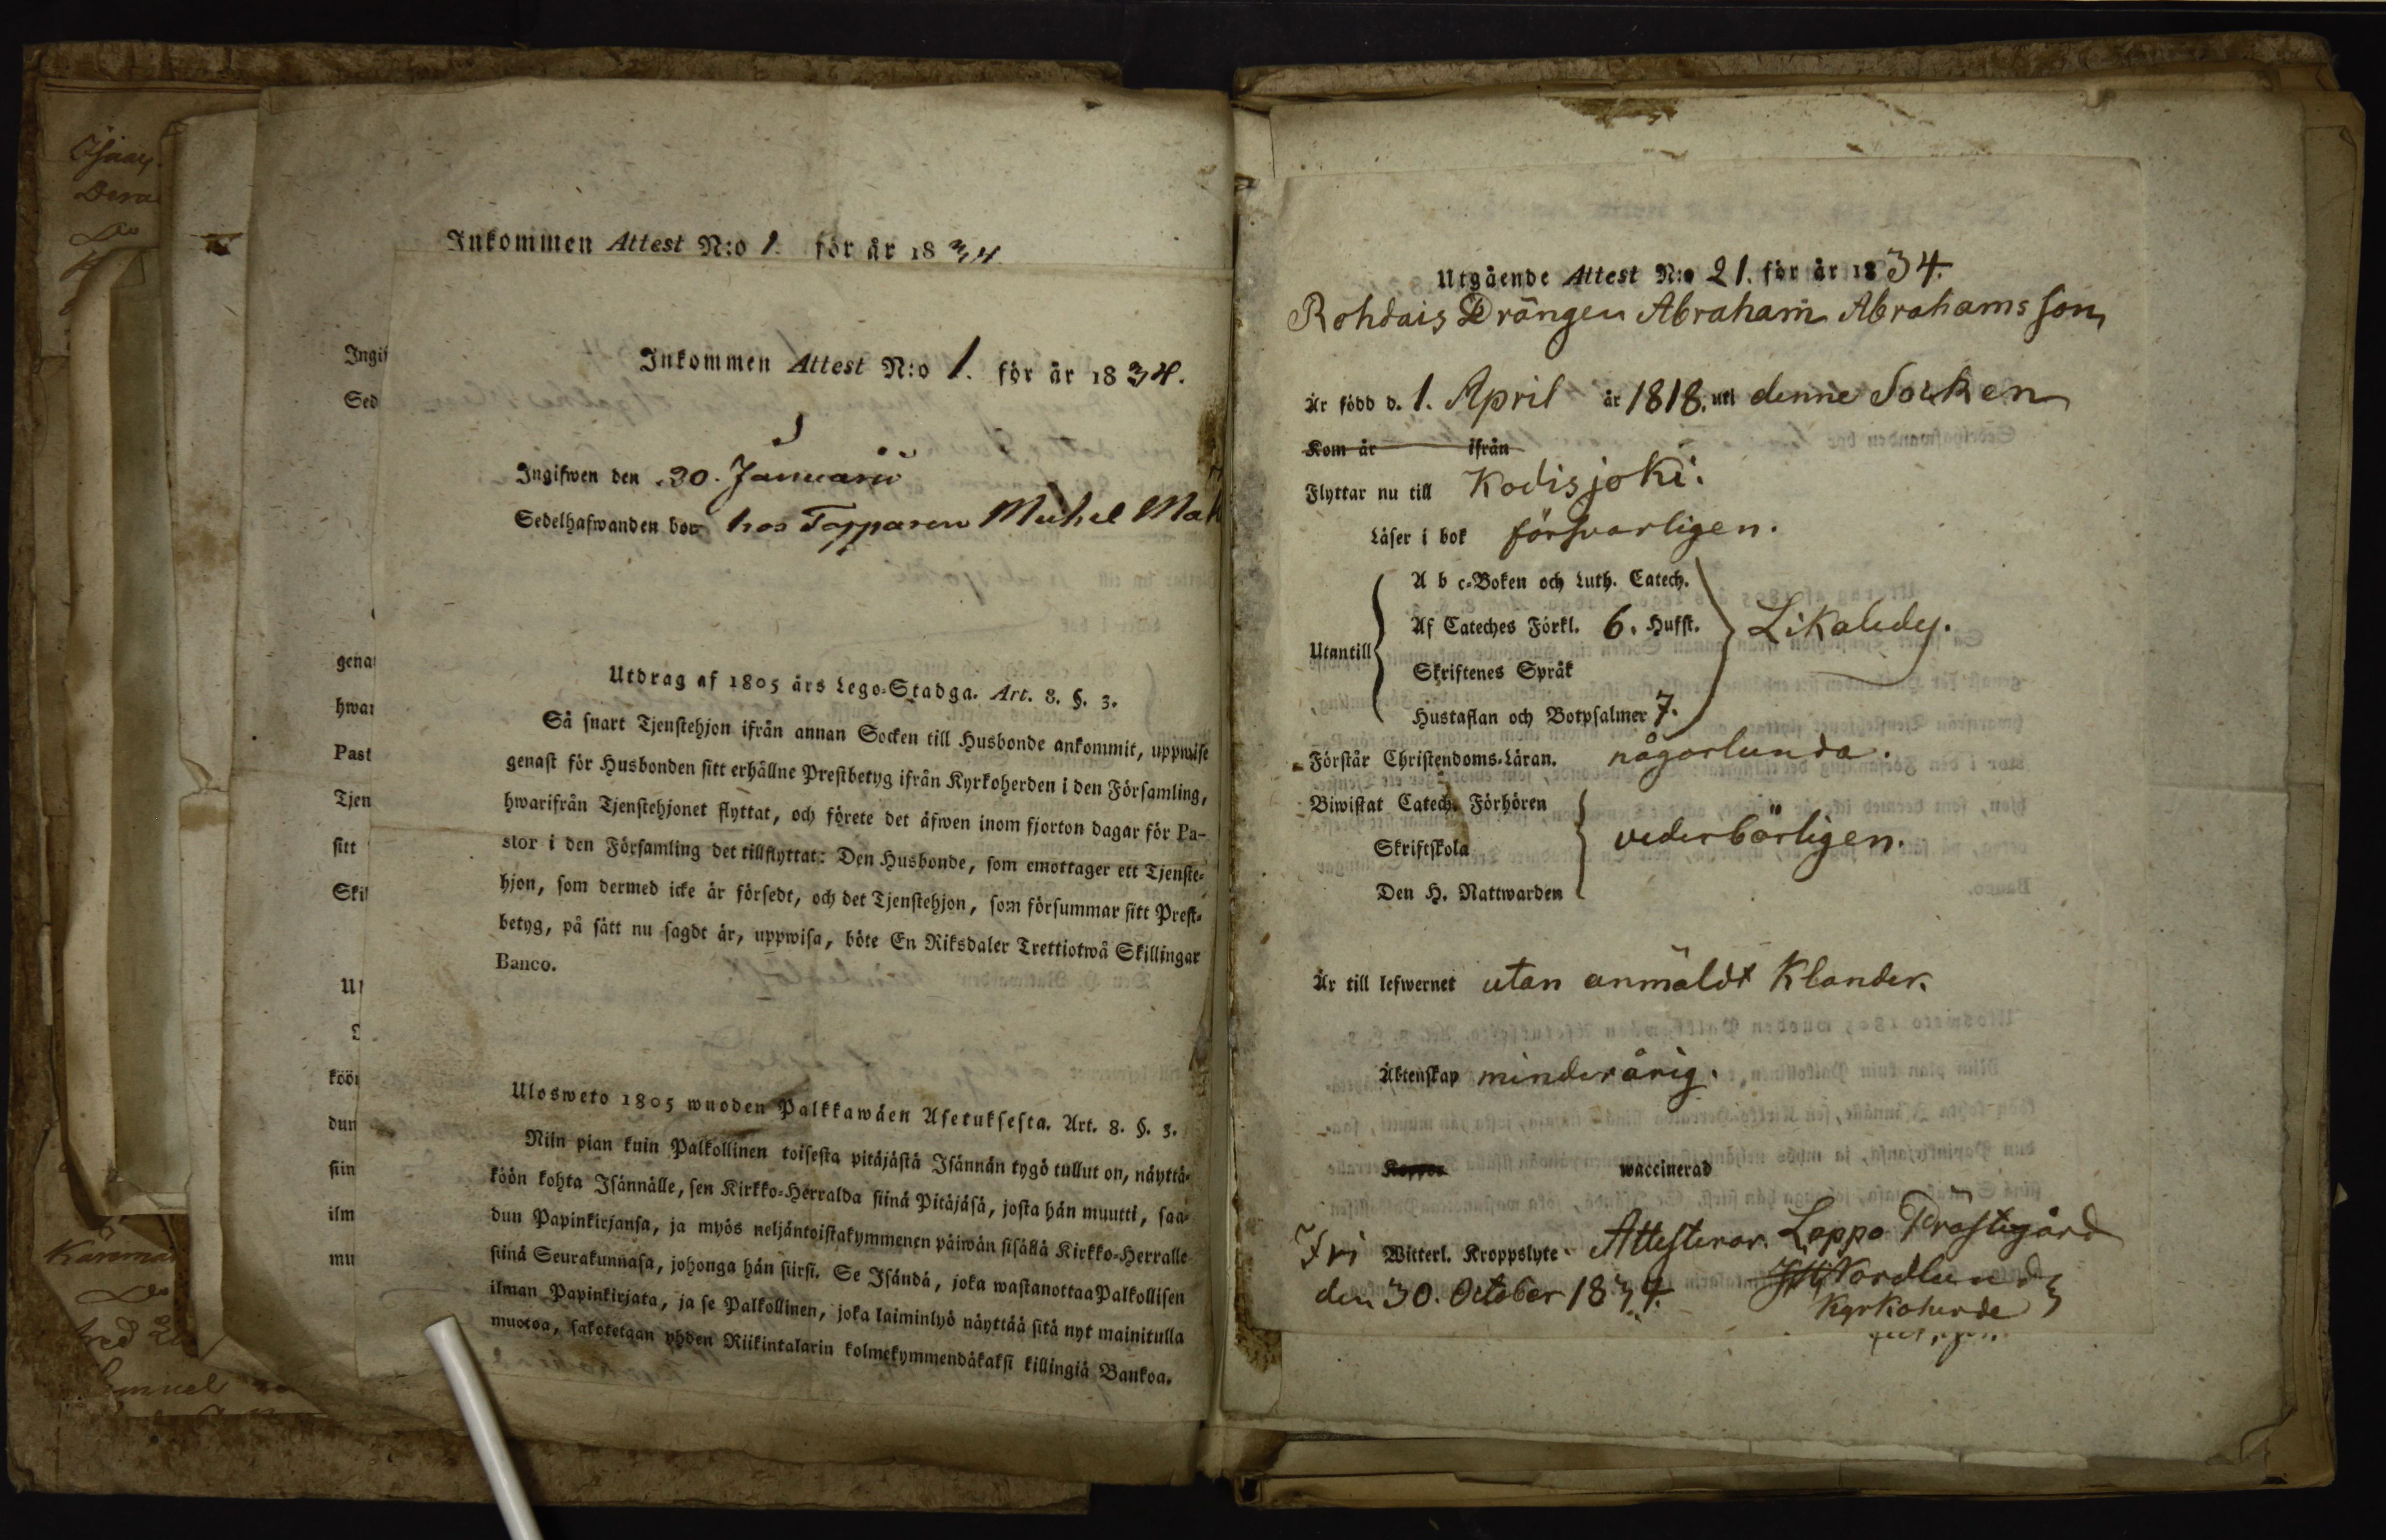 Inkommen Attest N:o 1. för år 1834
Inkommen Attest N:o 1. för år 1834.
Ingifwen den 30. Januarii
Sedelhafwanden bor hos Torparen Michel Mat
Utdrag af 1805 års Lego-Stadga. Art. 8. §. 3.
Så snart Tjenstehjon ifrån annan Socken till Husbonde ankommit, uppwise
genast för Husbonden sitt erhållne Prestbetyg ifrån Kyrkoherden i den Församling,
hwarifrån Tjenstehjonet flyttat, och förete det äfwen inom fjorton dagar för Pa-
stor i den Församling det tillflyttat: Den Husbonde, som emottager ett Tjenste-
hjon, som dermed icke är försedt, och det Tjenstehjon, som försummar sitt Prest-
betyg, på sätt nu sagdt är, uppwisa, böte En Riksdaler Trettiotwå Skillingar
Banco.
Ulosweto 1805 wuoden Palkkawäen Asetuksesta. Art. 8. §. 3.
Niin pian kuin Palkollinen toisesta pitäjästä Isännän tygö tullut on, näyttä-
köön kohta Isännälle, sen Kirkko-Herralda siinä Pitäjäsä, josta hän muutti, saa-
dun Papinkirjansa, ja myös neljäntoistakymmenen päiwän sisällä Kirkko-Herralle
siinä Seurakunnasa, johonga hän siirsi. Se Isändä, joka wastanottaa Palkollisen
ilman Papinkirjata, ja se Palkollinen, joka laiminlyö näyttää sitä nyt mainitulla
muotoa, sakotetaan yhden Riikintalarin kolmekymmendäkaksi killingiä Bankoa.
Ingif
Sed
gena
hwar
Past
Tjen
sitt
Skil
köön
dun
siin
ilm
mu
Utgående Attest N:o 21. för år 1834.
Rohdais Drängen Abraham Abrahamsson
Är född d. 1. April år 1818. uti denne Socken
Kom år ifrån
Flyttar nu till Kodisjoki.
Läser i bok försvarligen.
A b c-Boken och Luth. Catech.
Af Cateches Förkl. 6. Hufst. Likaledes.
Utantill
Skriftenes Språk
Hustaflan och Botpsalmer 7.
Förstår Christendoms-Läran. någorlunda.
Biwistat Catech. Förhören
Skriftskola vederbörligen.
Den H. Nattwarden
Är till lefwernet utan anmäldt Klander.
Äktenskap minderårig.
Koppor waccinerad
Fri Witterl. Kroppslyte. Attesterar. Lappo Prästegård
den 30. October 1834. Nordlund
Kyrkoherde